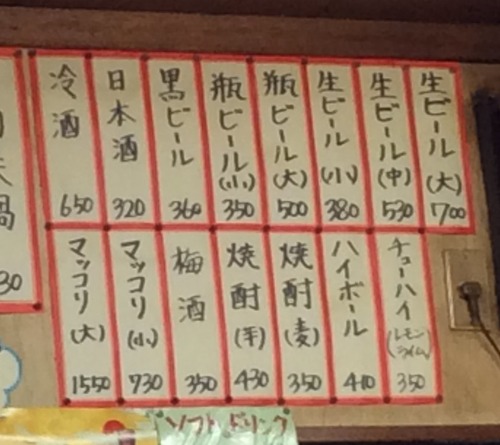 生ビール(大) 700
生ビール(中) 530
生ビール(小) 380
瓶ビール(大) 500
瓶ビール(小) 350
黒ビール 360
日本酒 320
冷酒 650
チューハイ(レモン ライム) 350
ハイボール 410
焼酎(麦) 350
焼酎(芋) 430
梅酒 350
マッコリ(小) 730
マッコリ(大) 1550
鍋
30
ソフトドリンク